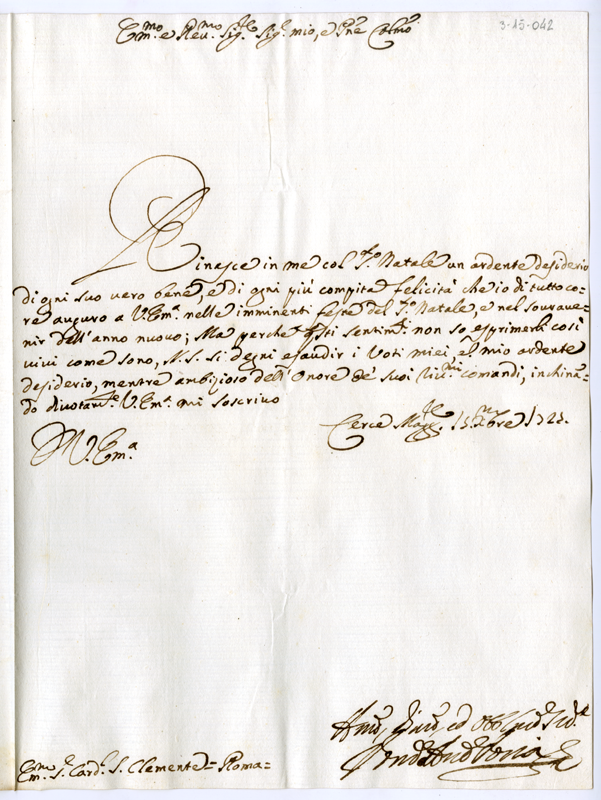 3-15-042
Em.mo e Rev.mo Sig.re Sig.r mio, e Pne Colmo
Rinasce in me col S.to Natale un ardente desiderio
di ogni suo vero bene, e di ogni più compita felicità che io di tutto co-
re auguro a V. Em.a nelle imminenti feste del S.to Natale, e nel sourave-
nir dell' anno nuovo; Ma perche qsti sentim.ti non so esprimerli così
vivi come sono, N. S. si degni esaudir i voti miei, e'l mio ardente
desiderio, mentre ambizioso dell' Onore de' suoi riu.mi comandi, inchina-
do diuotam.te V. Em.a mi soscriuo
Cerce Magg.re 15 Xbre 1725.
D V. Em.a
Em.mo S. Card.l S. Clemente = Roma =